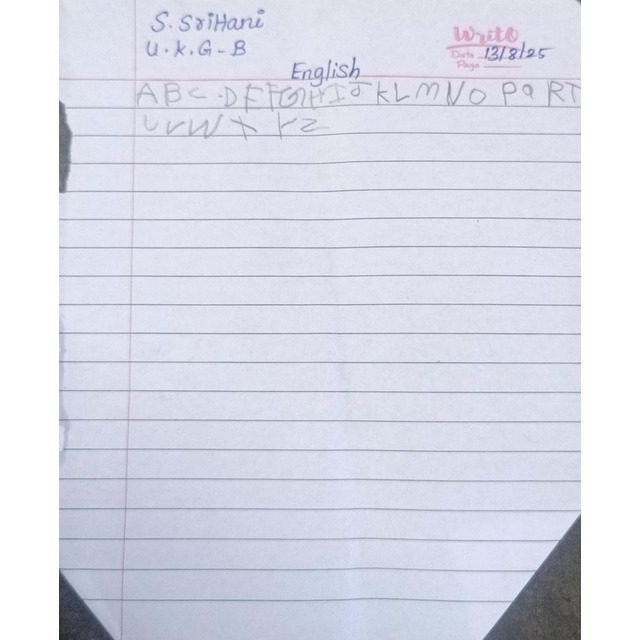 S. SriHani
U.K.G-B
Write
Date 13/8/25
Page
English
A B C .D E F G H I J K L M N O P Q R T
U V W X Y Z